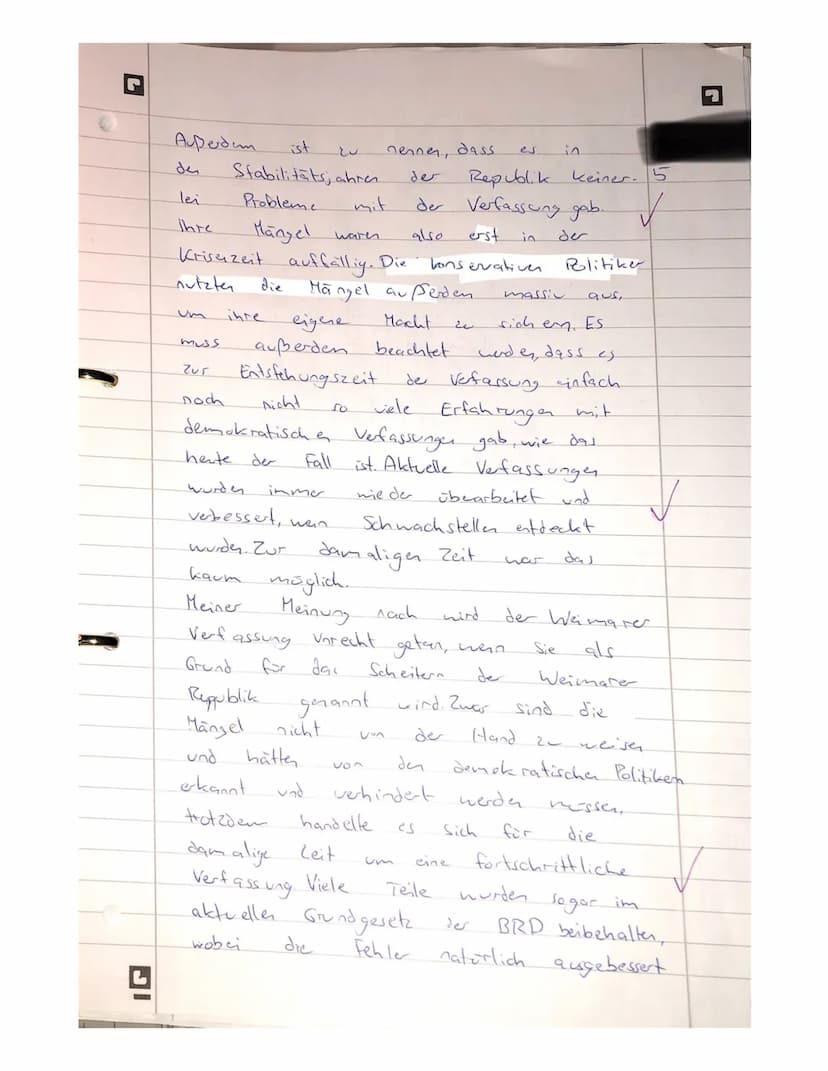 Außerdem ist zu nennen, dass es in
den Stabilitätsjahren der Republik keiner- 5
lei Probleme mit der Verfassung gab.
Ihre Mängel waren also erst in der
Krisenzeit auffällig. Die konservativen Politiker
nutzten die Mängel außerdem massiv aus,
um ihre eigene Macht zu sichern. Es
muss außerdem beachtet werden, dass es
zur Entstehungszeit der Verfassung einfach
noch nicht so viele Erfahrungen mit
demokratischen Verfassungen gab, wie das
heute der Fall ist. Aktuelle Verfassungen
wurden immer wieder überarbeitet und
verbessert, wenn Schwachstellen entdeckt
wurden. Zur damaligen Zeit war das
kaum möglich.
Meiner Meinung nach wird der Weimarer
Verfassung Unrecht getan, wenn Sie als
Grund für das Scheitern der Weimarer
Republik genannt wird. Zwar sind die
Mängel nicht von der Hand zu weisen
und hätten von den demokratischen Politikern
erkannt und verhindert werden müssen,
trotzdem handelte es sich für die
damalige Zeit um eine fortschrittliche
Verfassung. Viele Teile wurden sogar im
aktuellen Grundgesetz der BRD beibehalten,
wobei die Fehler natürlich ausgebessert